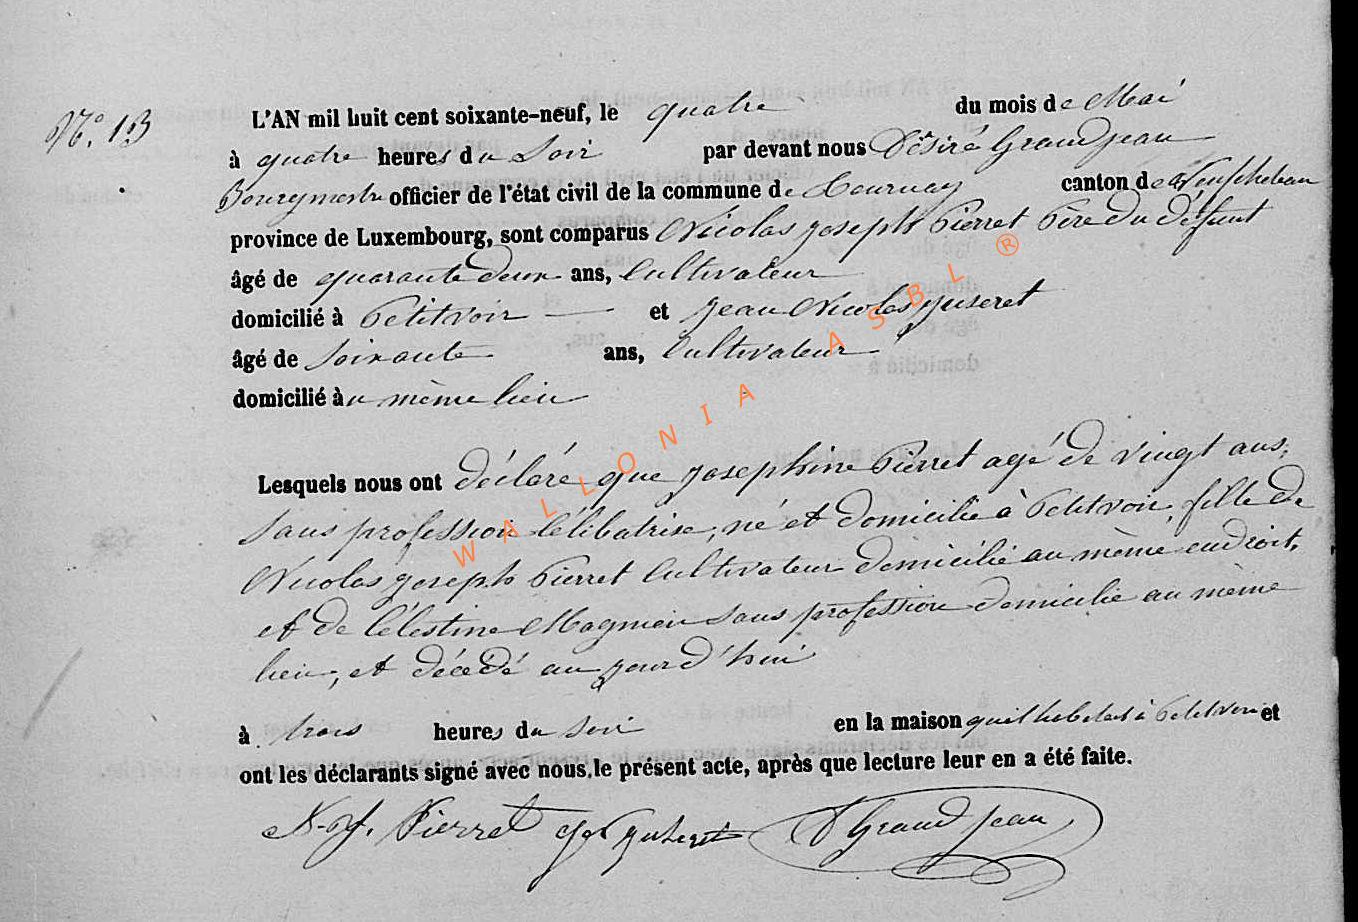 N°. 13
L'AN mil huit cent soixante-neuf, le quatre du mois de Mai
à quatre heures du Soir par devant nous Désiré Grandjean
Bourgmestre officier de l'état civil de la commune de Tournay canton de Neufchateau
province de Luxembourg, sont comparus Nicolas joseph Pierret Père du défunt
âgé de quarante deux ans, Cultivateur
domicilié à Petitvoir et jean Nicolas juseret
âgé de Soixante ans, Cultivateur
domicilié au même lieu
Lesquels nous ont déclaré que josephine Pierret agé de vingt ans,
sans profession Célibatrise, né et domicilié à Petitvoir, fille de
Nicolas joseph Pierret Cultivateur domicilié au même endroit,
et de Célestine Magnien sans profession domicilié au même
lieu, et décédé au jourd'hui
à trois heures du Soir en la maison qu'il habitait à Petitvoir et
ont les déclarants signé avec nous le présent acte, après que lecture leur en a été faite.
N-J. Pierret juseret D Grandjean
WALLONIA ASBL ®